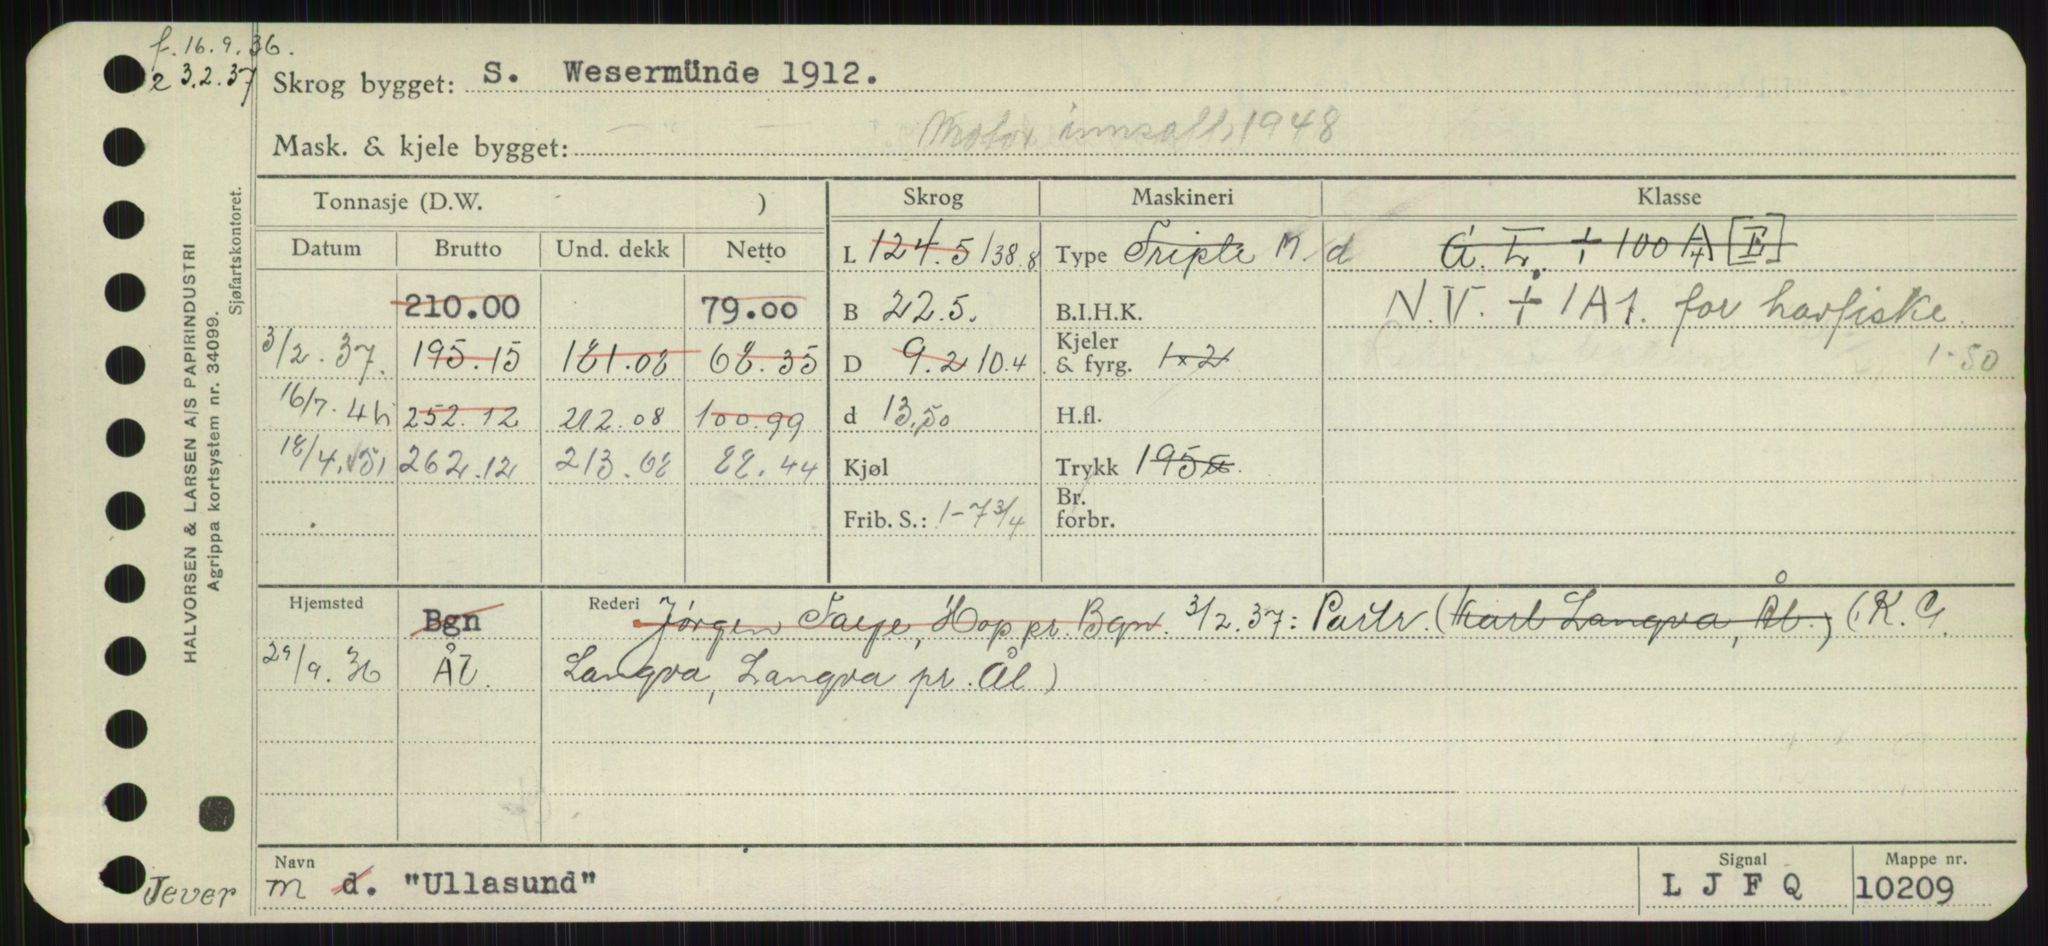 f. 16.9.36.
e 3.2.37
Skrog bygget: S. Wesermünde 1912.
Mask. & kjele bygget: Motor innsatt, 1948
Tonnasje (D.W. ) Skrog Maskineri Klasse
Datum Brutto Und. dekk Netto L 124.5 138.8 Type Triple M d G. L. + 100 A/4 [E]
210.00 79.00 B 22.5. B.I.H.K. N.V. + 1A1. for havfiske
3/2.37. 195.15 181.08 68.35 D 9.2 10.4 Kjeler & fyrg. 1x2 1-50
16/7.46 252.12 212.08 100.99 d 13,50 H.fl.
18/4.51 262.12 213.68 88.44 Kjøl Trykk 195
Frib. S.: 1-7 3/4 Br. forbr.
Hjemsted Bgn Rederi Jørgen Faye, Hop pr. Bgn. 3/2.37: Partr. (Karl Langva, Ål.) (K. G.
29/9.36 Ål. Langva, Langva pr. Ål)
Navn Signal Mappe nr.
m d. "Ullasund" L J F Q 10209
Jever
HALVORSEN & LARSEN A/S PAPIRINDUSTRI
Agrippa kortsystem nr. 34099.
Sjøfartskontoret.